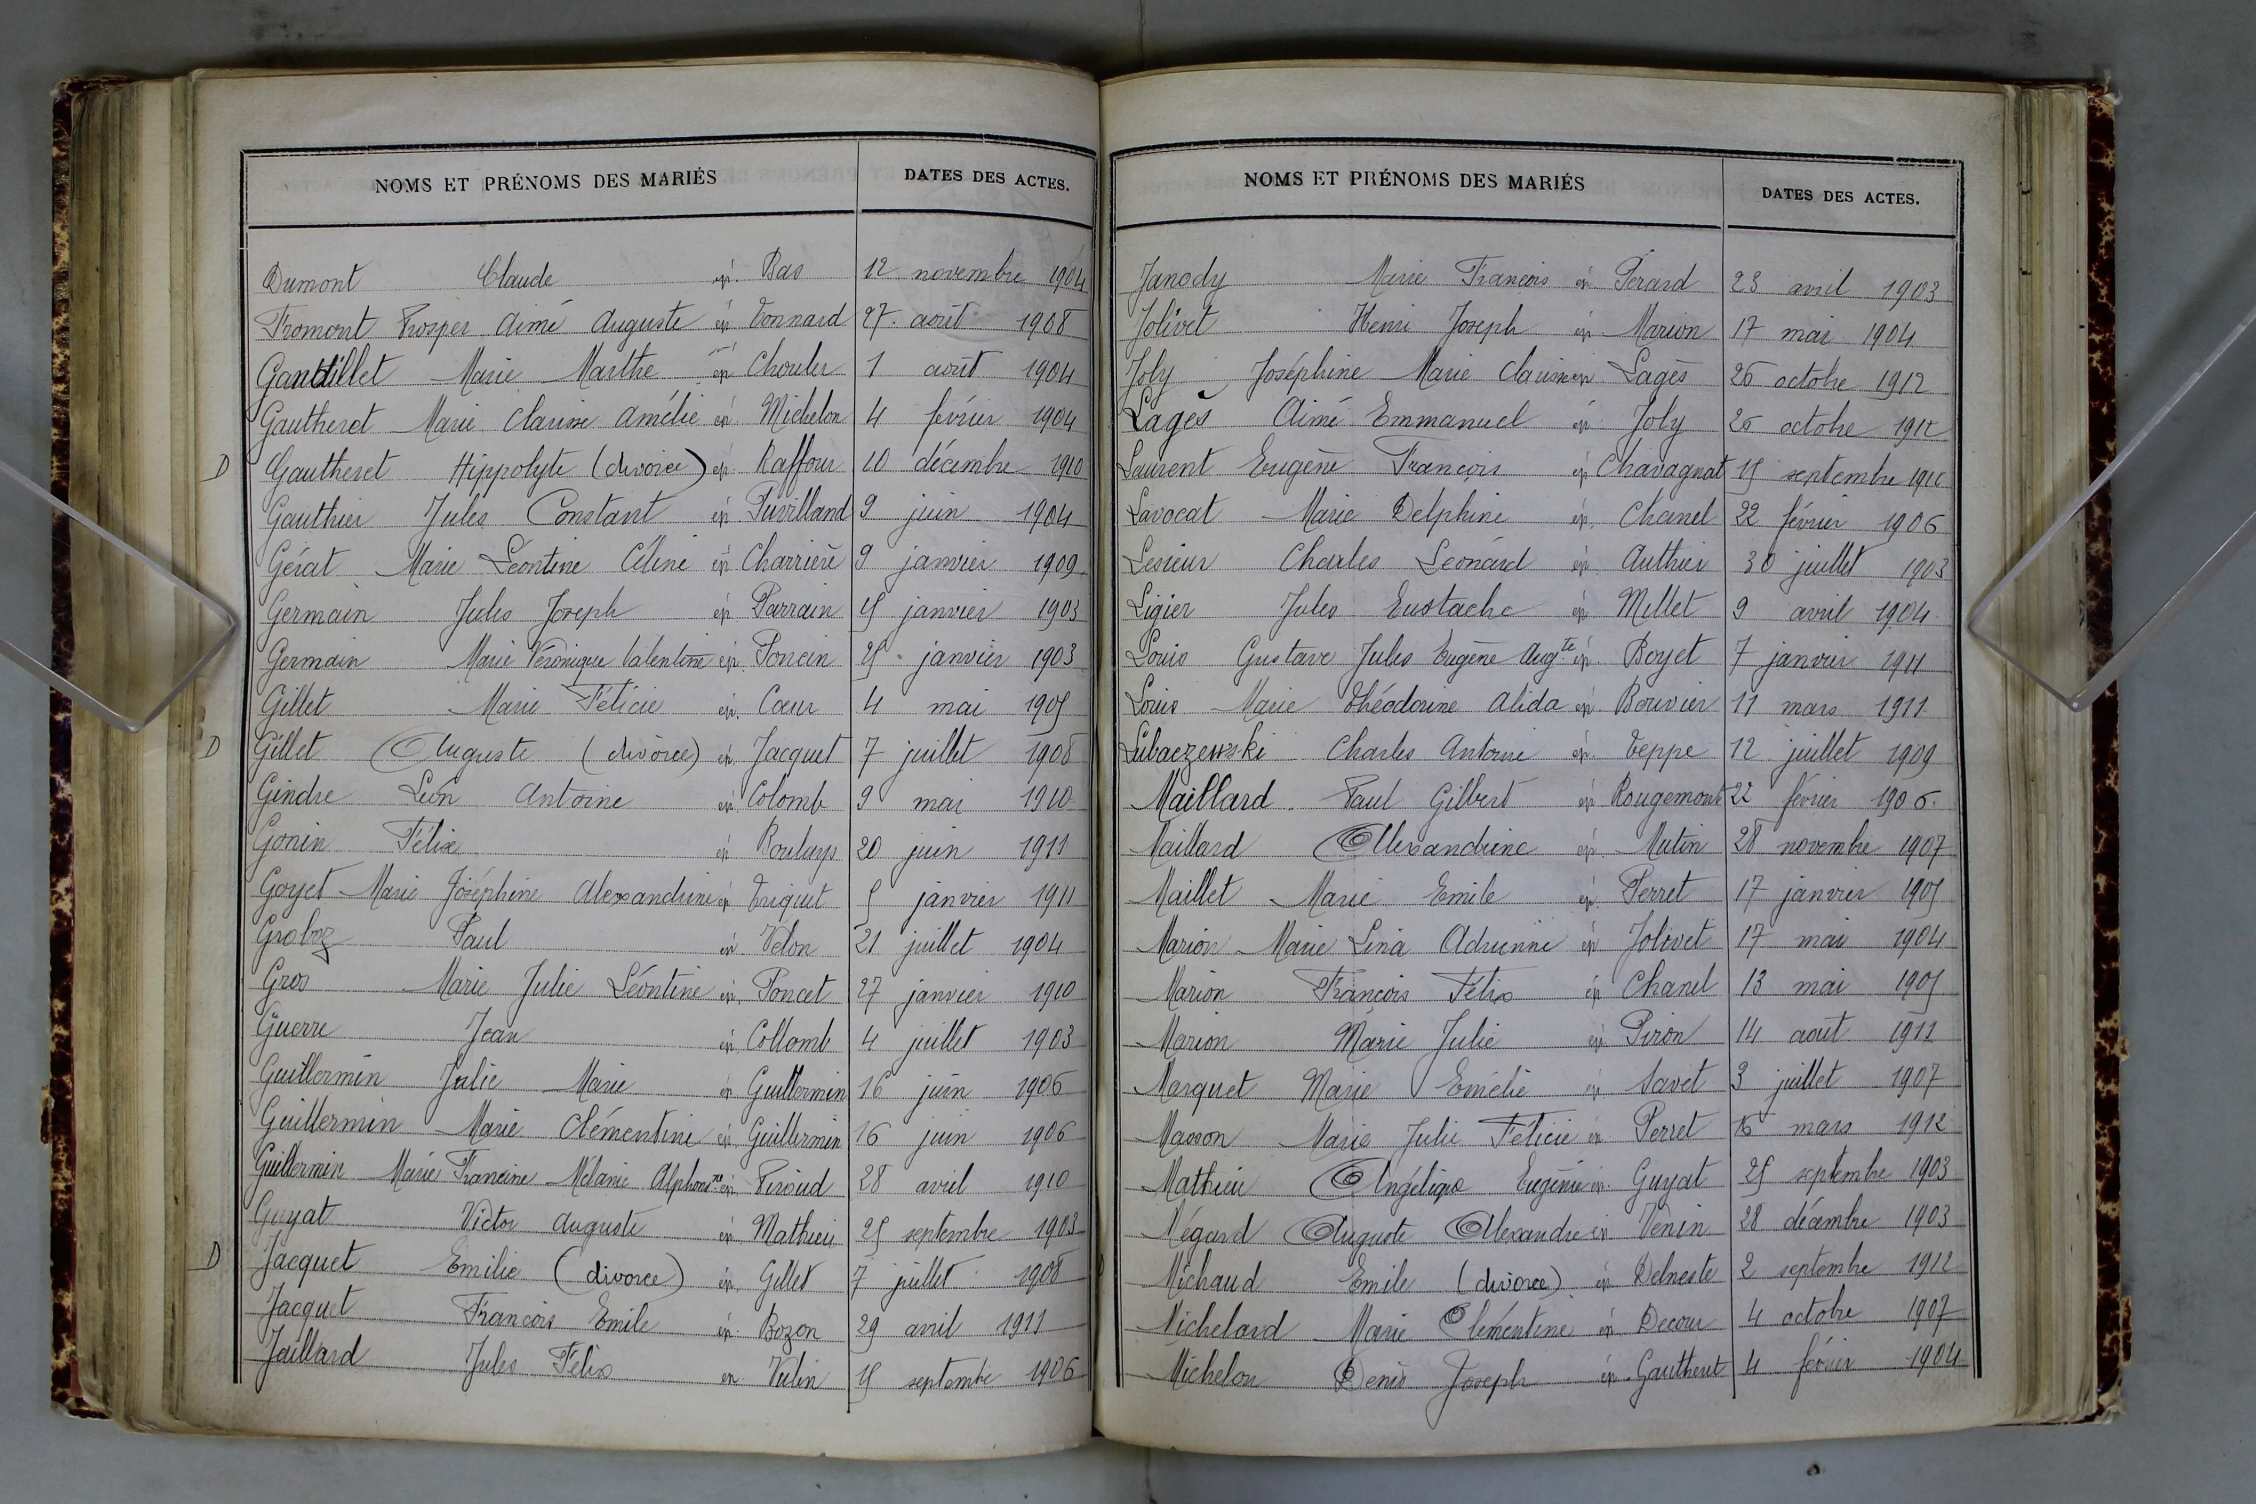 NOMS ET PRÉNOMS DES MARIÉS DATES DES ACTES.
Dumont Claude ép. Bas 12 novembre 1904
Fromont Prosper Aimé Auguste ép Vonnard 27 août 1908
Gandillet Marie Marthe ép Chouler 1 août 1904
Gautheret Marie Clarisse Amélie ép Michelon 4 février 1904
D Gautheret Hippolyte (divorce) ép. Raffour 10 décembre 1910
Gauthier Jules Constant ép Puvilland 9 juin 1904
Gérat Marie Léontine Céline ép Charrière 9 janvier 1909
Germain Jules Joseph ép Parrain 15 janvier 1903
Germain Marie Véronique Valentine ép. Poncin 25 janvier 1903
Gillet Marie Félicie ép. Cœur 4 mai 1905
D Gillet Auguste (divorce) ép. Jacquet 7 juillet 1908
Gindre Léon Antoine ép Colomb 9 mai 1910
Gonin Félix ép 20 juin 1911
Goyet Marie Joséphine Alexandrine ép Triquet 5 janvier 1911
Groboz Paul ép Velon 21 juillet 1904
Gros Marie Julie Léontine ép. Poncet 27 janvier 1910
Guerre Jean ép Collomb 4 juillet 1903
Guillermin Julie Marie ép Guillermin 16 juin 1906
Guillermin Marie Clémentine ép Guillermin 16 juin 1906
Guillermin Marie Francine Mélanie Alphonsne ép. Piroud 28 avril 1910
Guyat Victor Auguste ép Mathieu 25 septembre 1903
D Jacquet Emilie (divorce) ép. Gillet 7 juillet 1908
Jacquet François Emile ép. Bozon 29 avril 1911
Jaillard Jules Félix ép. Vulin 15 septembre 1906
NOMS ET PRÉNOMS DES MARIÉS DATES DES ACTES.
Janody Marie François ép Pérard 23 avril 1903
Jolivet Henri Joseph ép Marion 17 mai 1904
Joly Joséphine Marie Clarisse ép Lagès 26 octobre 1912
Lagès Aimé Emmanuel ép Joly 26 octobre 1912
Laurent Eugène François ép Chavagnat 15 septembre 1910
Lavocat Marie Delphine ép. Chanel 22 février 1906
Lesieur Charles Leonard ép Authier 30 juillet 1903
Ligier Jules Eustache ép Millet 9 avril 1904
Louis Gustave Jules Eugène Augte ép. Boyet 7 janvier 1911
Louis Marie Théodorine Alida ép Bouvier 11 mars 1911
Lubaczewski Charles Antoine ép Teppe 12 juillet 1909
Maillard Paul Gilbert ép Rougemont 22 février 1906.
Maillard Alexandrine ép Mutin 28 novembre 1907
Maillet Marie Emile ép Perret 17 janvier 1905
Marion Marie Lina Adrienne ép Jolivet 17 mai 1904
Marion François Félix ép Chanel 13 mai 1905
Marion Marie Julie ép Piron 14 août 1911
Marquet Marie Emélie ép Savet 3 juillet 1907
Masson Marie Julie Félicie ép Perret 16 mars 1912
Mathieu Angélique Eugénie ép. Guyat 25 septembre 1903
Mégard Auguste Alexandre ép Venin 28 décembre 1903
D Michaud Emile (divorce) ép Delneste 2 septembre 1912
Michelard Marie Clémentine ép Decour 4 octobre 1907
Michelon Denis Joseph ép. Gautheret 4 février 1904